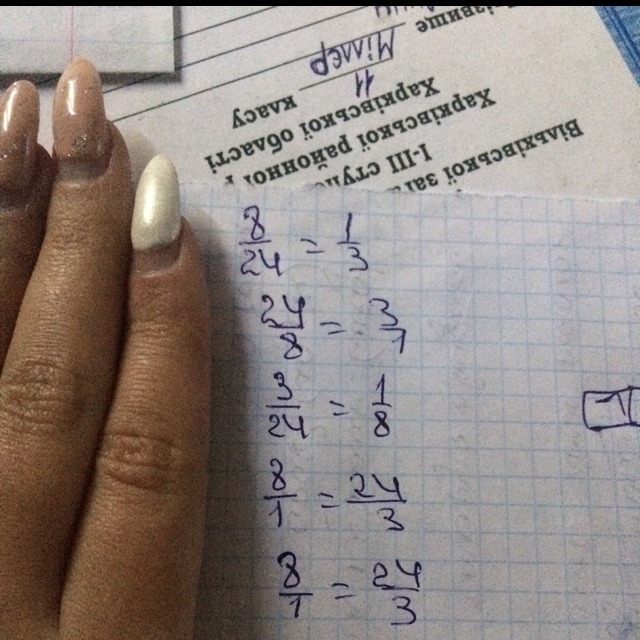 Вільхівської заг
І-ІІІ ступ
Харківської районної р
Харківської області
11 класу
Міллер
ізвище
8/24 = 1/3
24/8 = 3/1
3/24 = 1/8
8/1 = 24/3
8/1 = 24/3